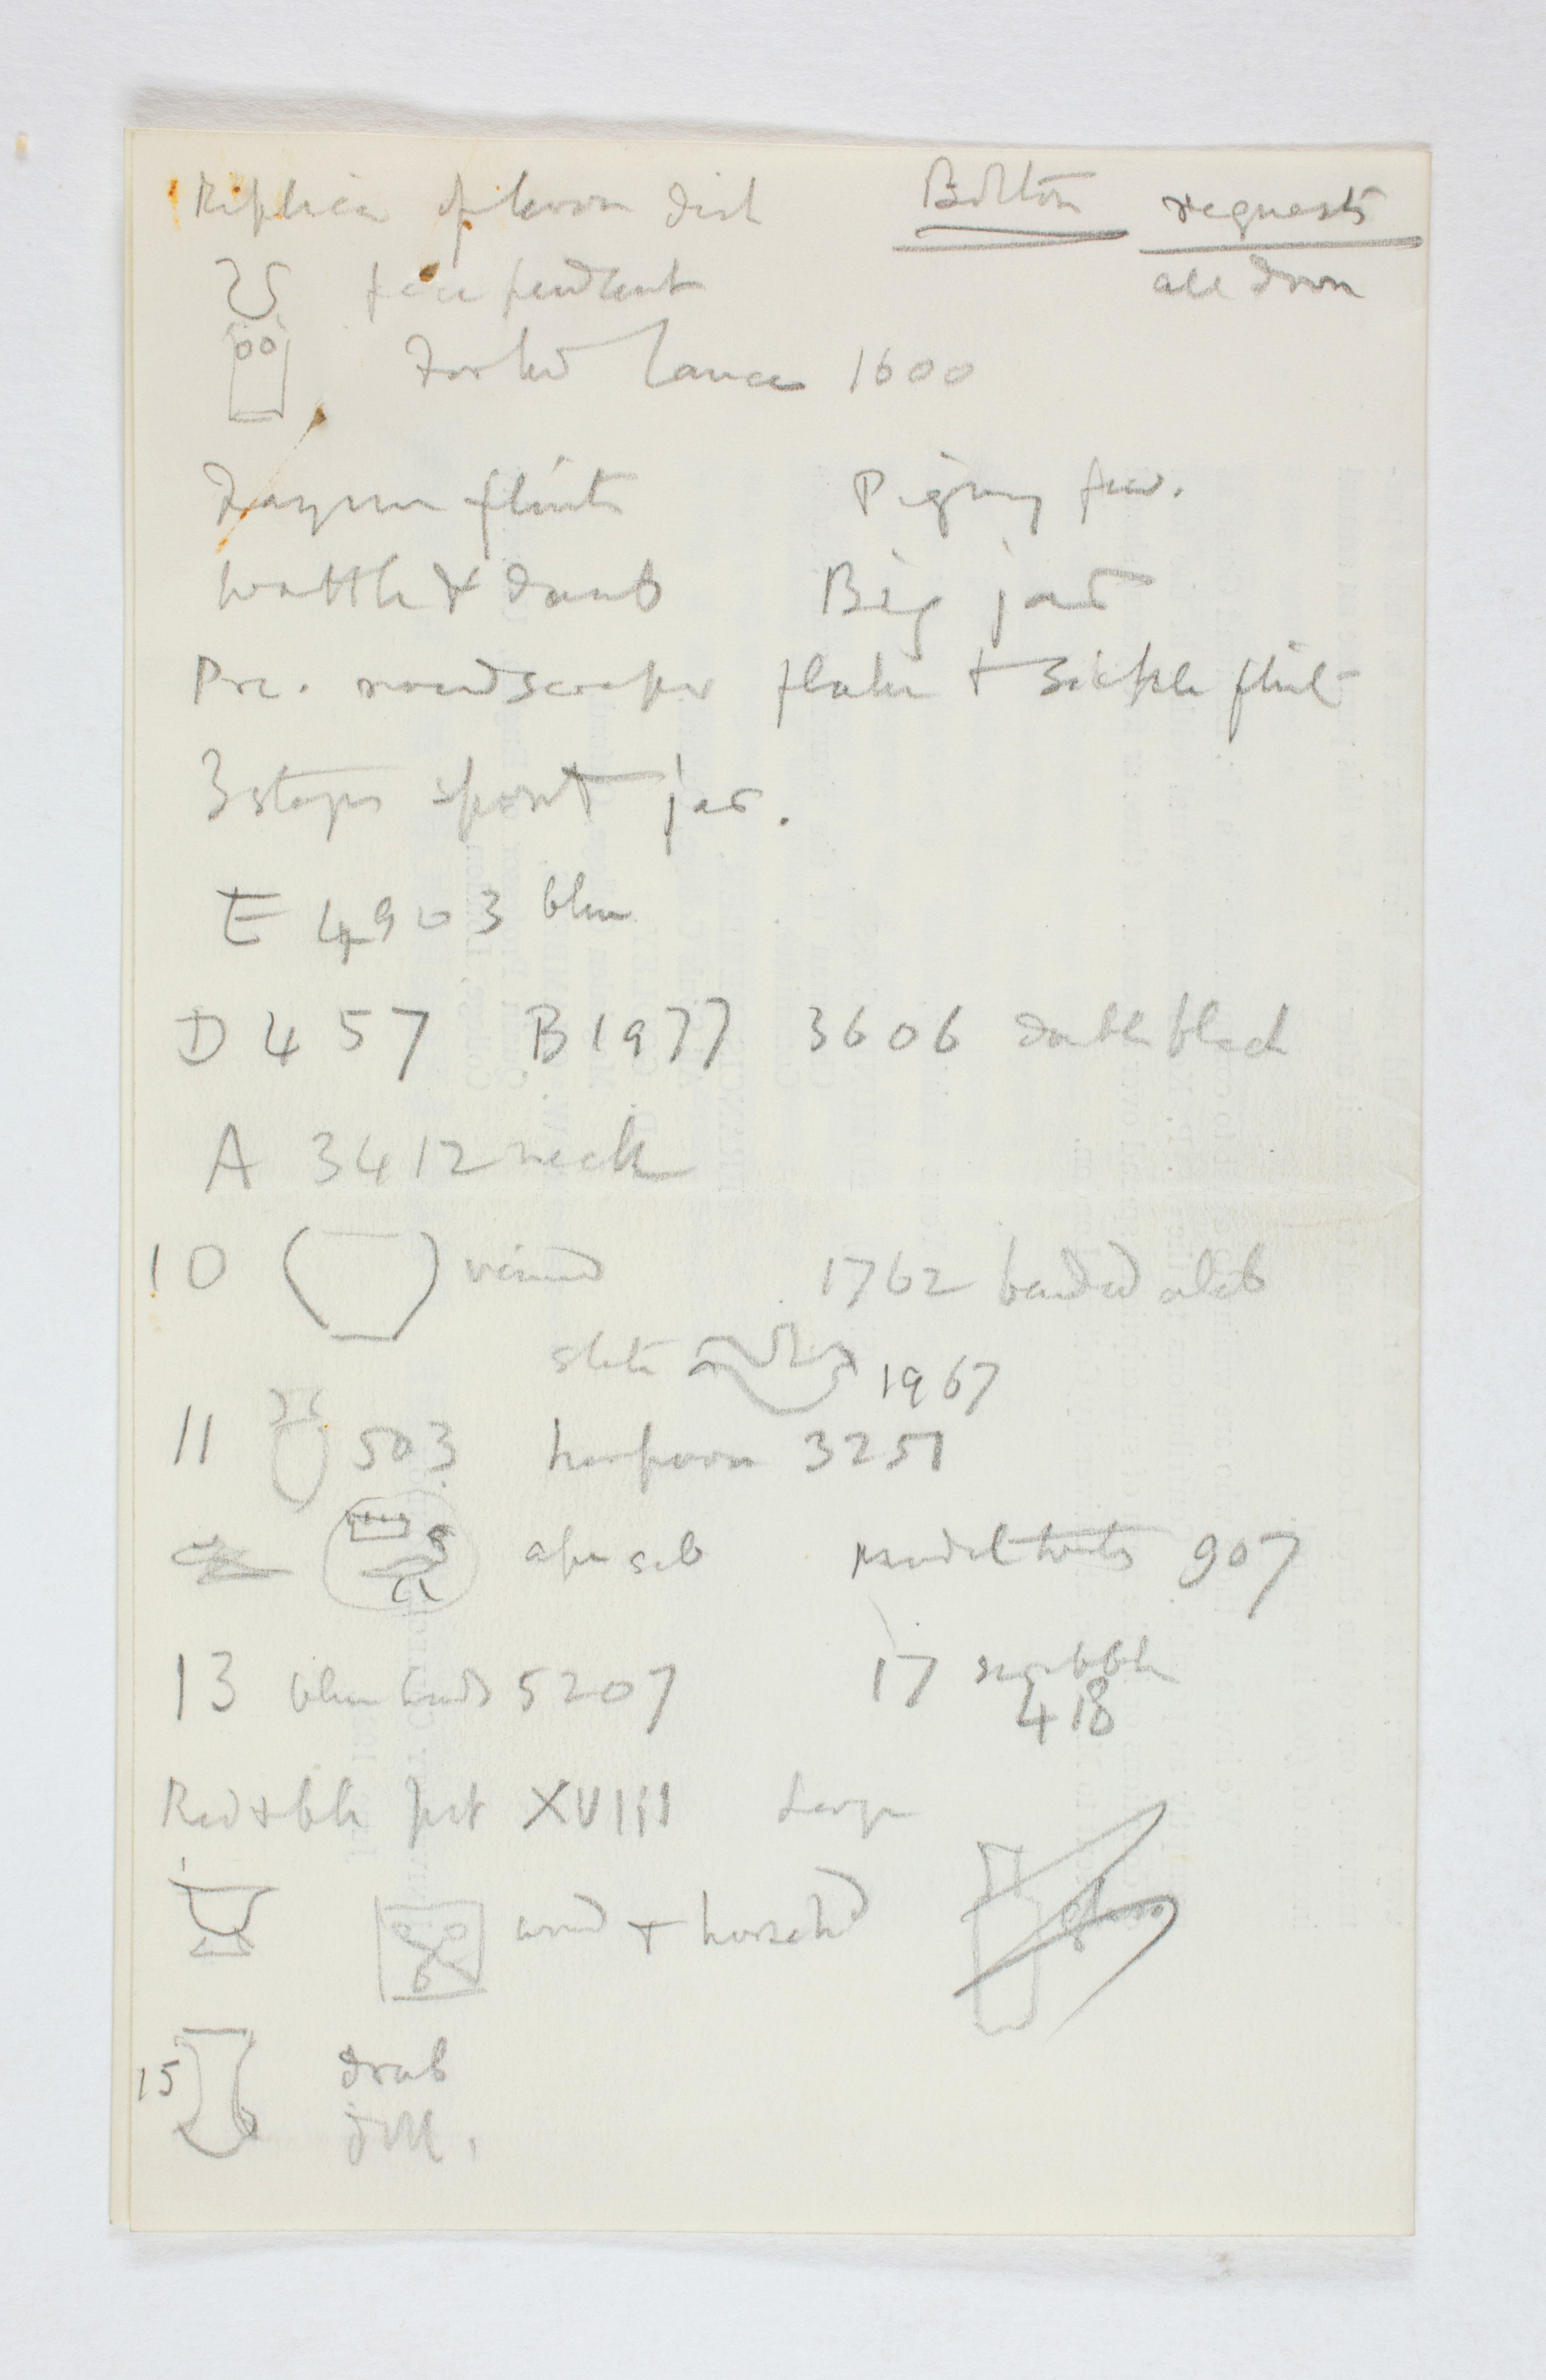 Replica of [] dish
Bolton requests
all done
face pendant
Forked lance 1600
Fayum flints
Pigmy
Wattle & daub
Big jar
Pre. round scraper flake + sickle flint
3 steps spout jar.
E 4903 blue
D 457 B 1977 3606 double black
A 3412 neck
10 veined
1762 banded alab
slate 1967
11 503 harpoon 3251
ape seb
model tools 907
13 blue beads 5207
17 scrabble
418
Red & blk pot XVIII Large
wood + horsehd
glass
15 drab
doll.